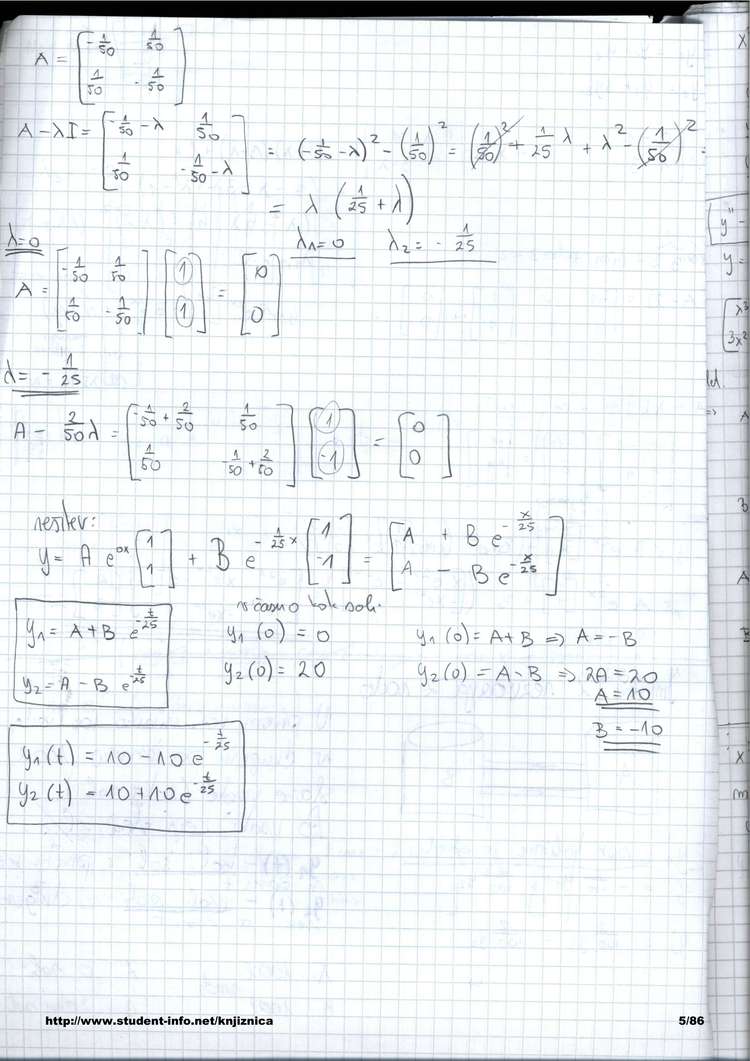 A = [ -1/50 1/50
1/50 -1/50 ]
A - λI = [ -1/50 - λ 1/50
1/50 -1/50 - λ ] = (-1/50 - λ)² - (1/50)² = (1/50)² + 1/25 λ + λ² - (1/50)² =
= λ (1/25 + λ)
λ=0 λ1=0 λ2 = - 1/25
A = [ -1/50 1/50
1/50 -1/50 ] [ 1
1 ] = [ 0
0 ]
λ = - 1/25
A - 2/50 λ = [ -1/50 + 2/50 1/50
1/50 -1/50 + 2/50 ] [ 1
-1 ] = [ 0
0 ]
rešitev:
y = A e^0x [ 1
1 ] + B e^(-1/25 x) [ 1
-1 ] = [ A + B e^(-x/25)
A - B e^(-x/25) ]
y1 = A + B e^(-t/25) y1 (0) = 0 y1 (0) = A + B => A = -B
y2 = A - B e^(-t/25) y2 (0) = 20 y2 (0) = A - B => 2A = 20
A = 10
B = -10
y1 (t) = 10 - 10 e^(-t/25)
y2 (t) = 10 + 10 e^(-t/25)
http://www.student-info.net/knjiznica 5/86